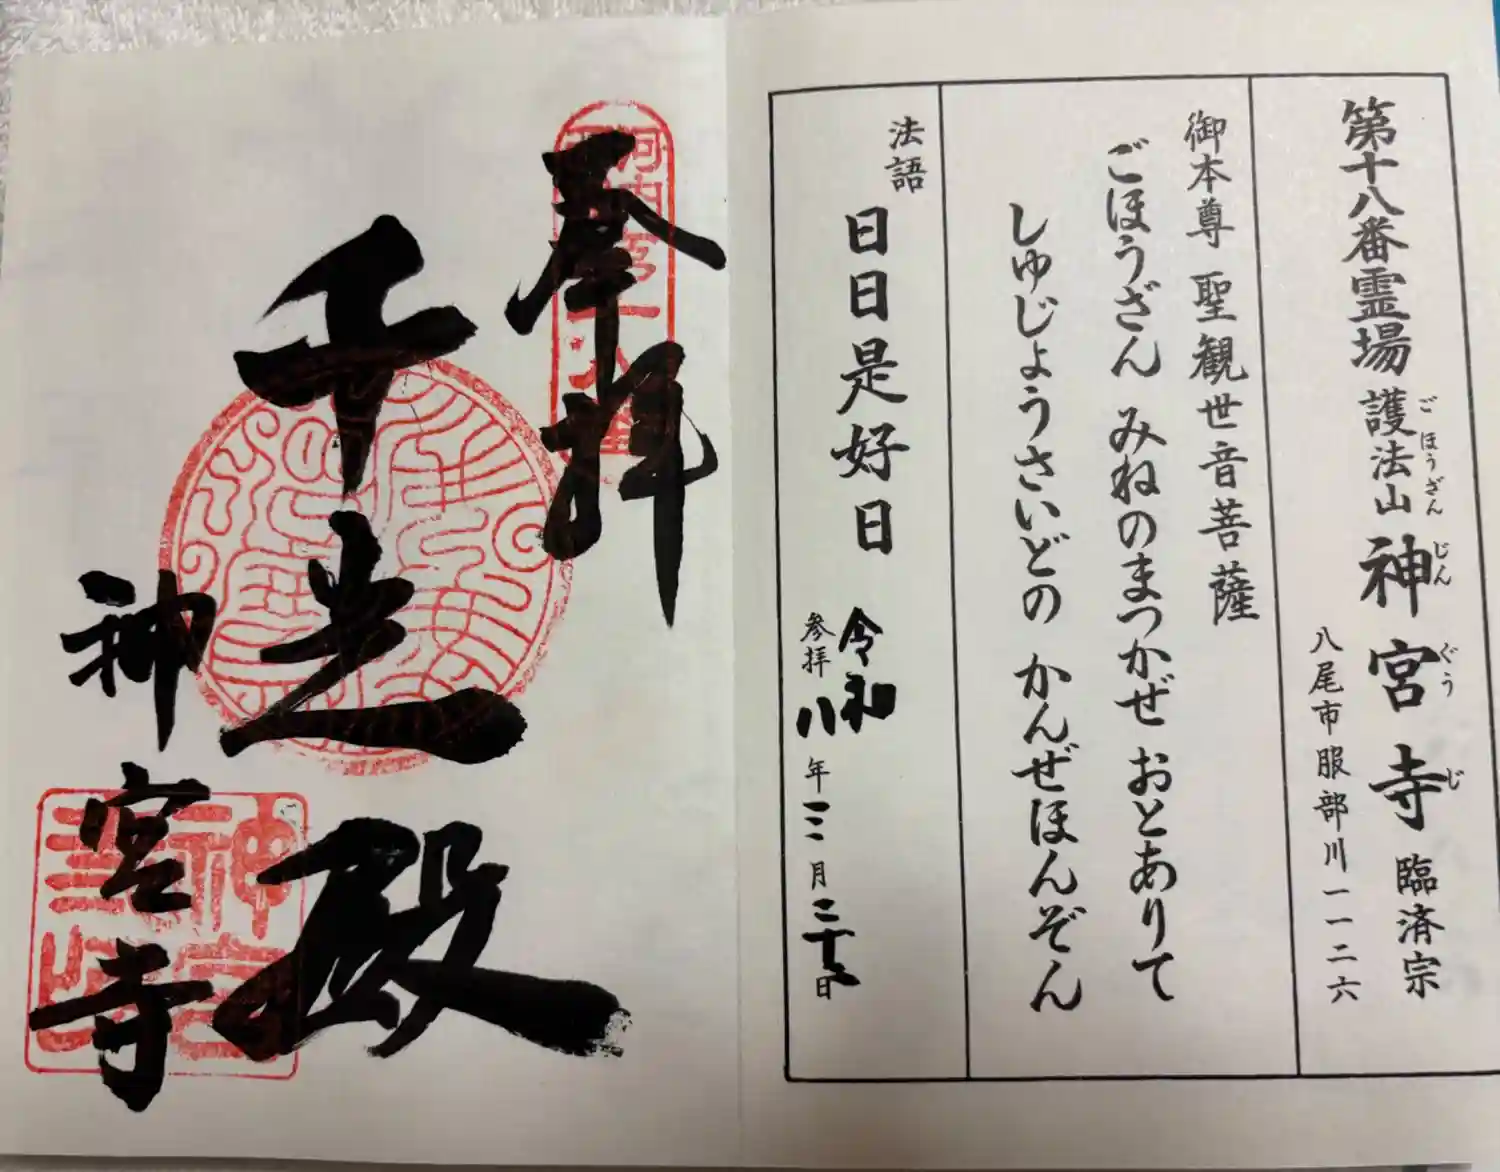 第十八番霊場 護法山 神宮寺 臨済宗
ごほうざん じんぐうじ
八尾市服部川一一二六
御本尊 聖観世音菩薩
ごほうざん みねのまつかぜ おとありて
しゅじょうさいどの かんぜほんぞん
法語 日日是好日
令和
参拝 八年三月二十日
奉拝
千光殿
神宮寺